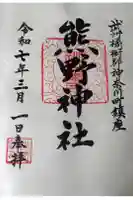 武州橘樹郡神奈川町鎮座
熊野神社
令和七年三月一日奉拝